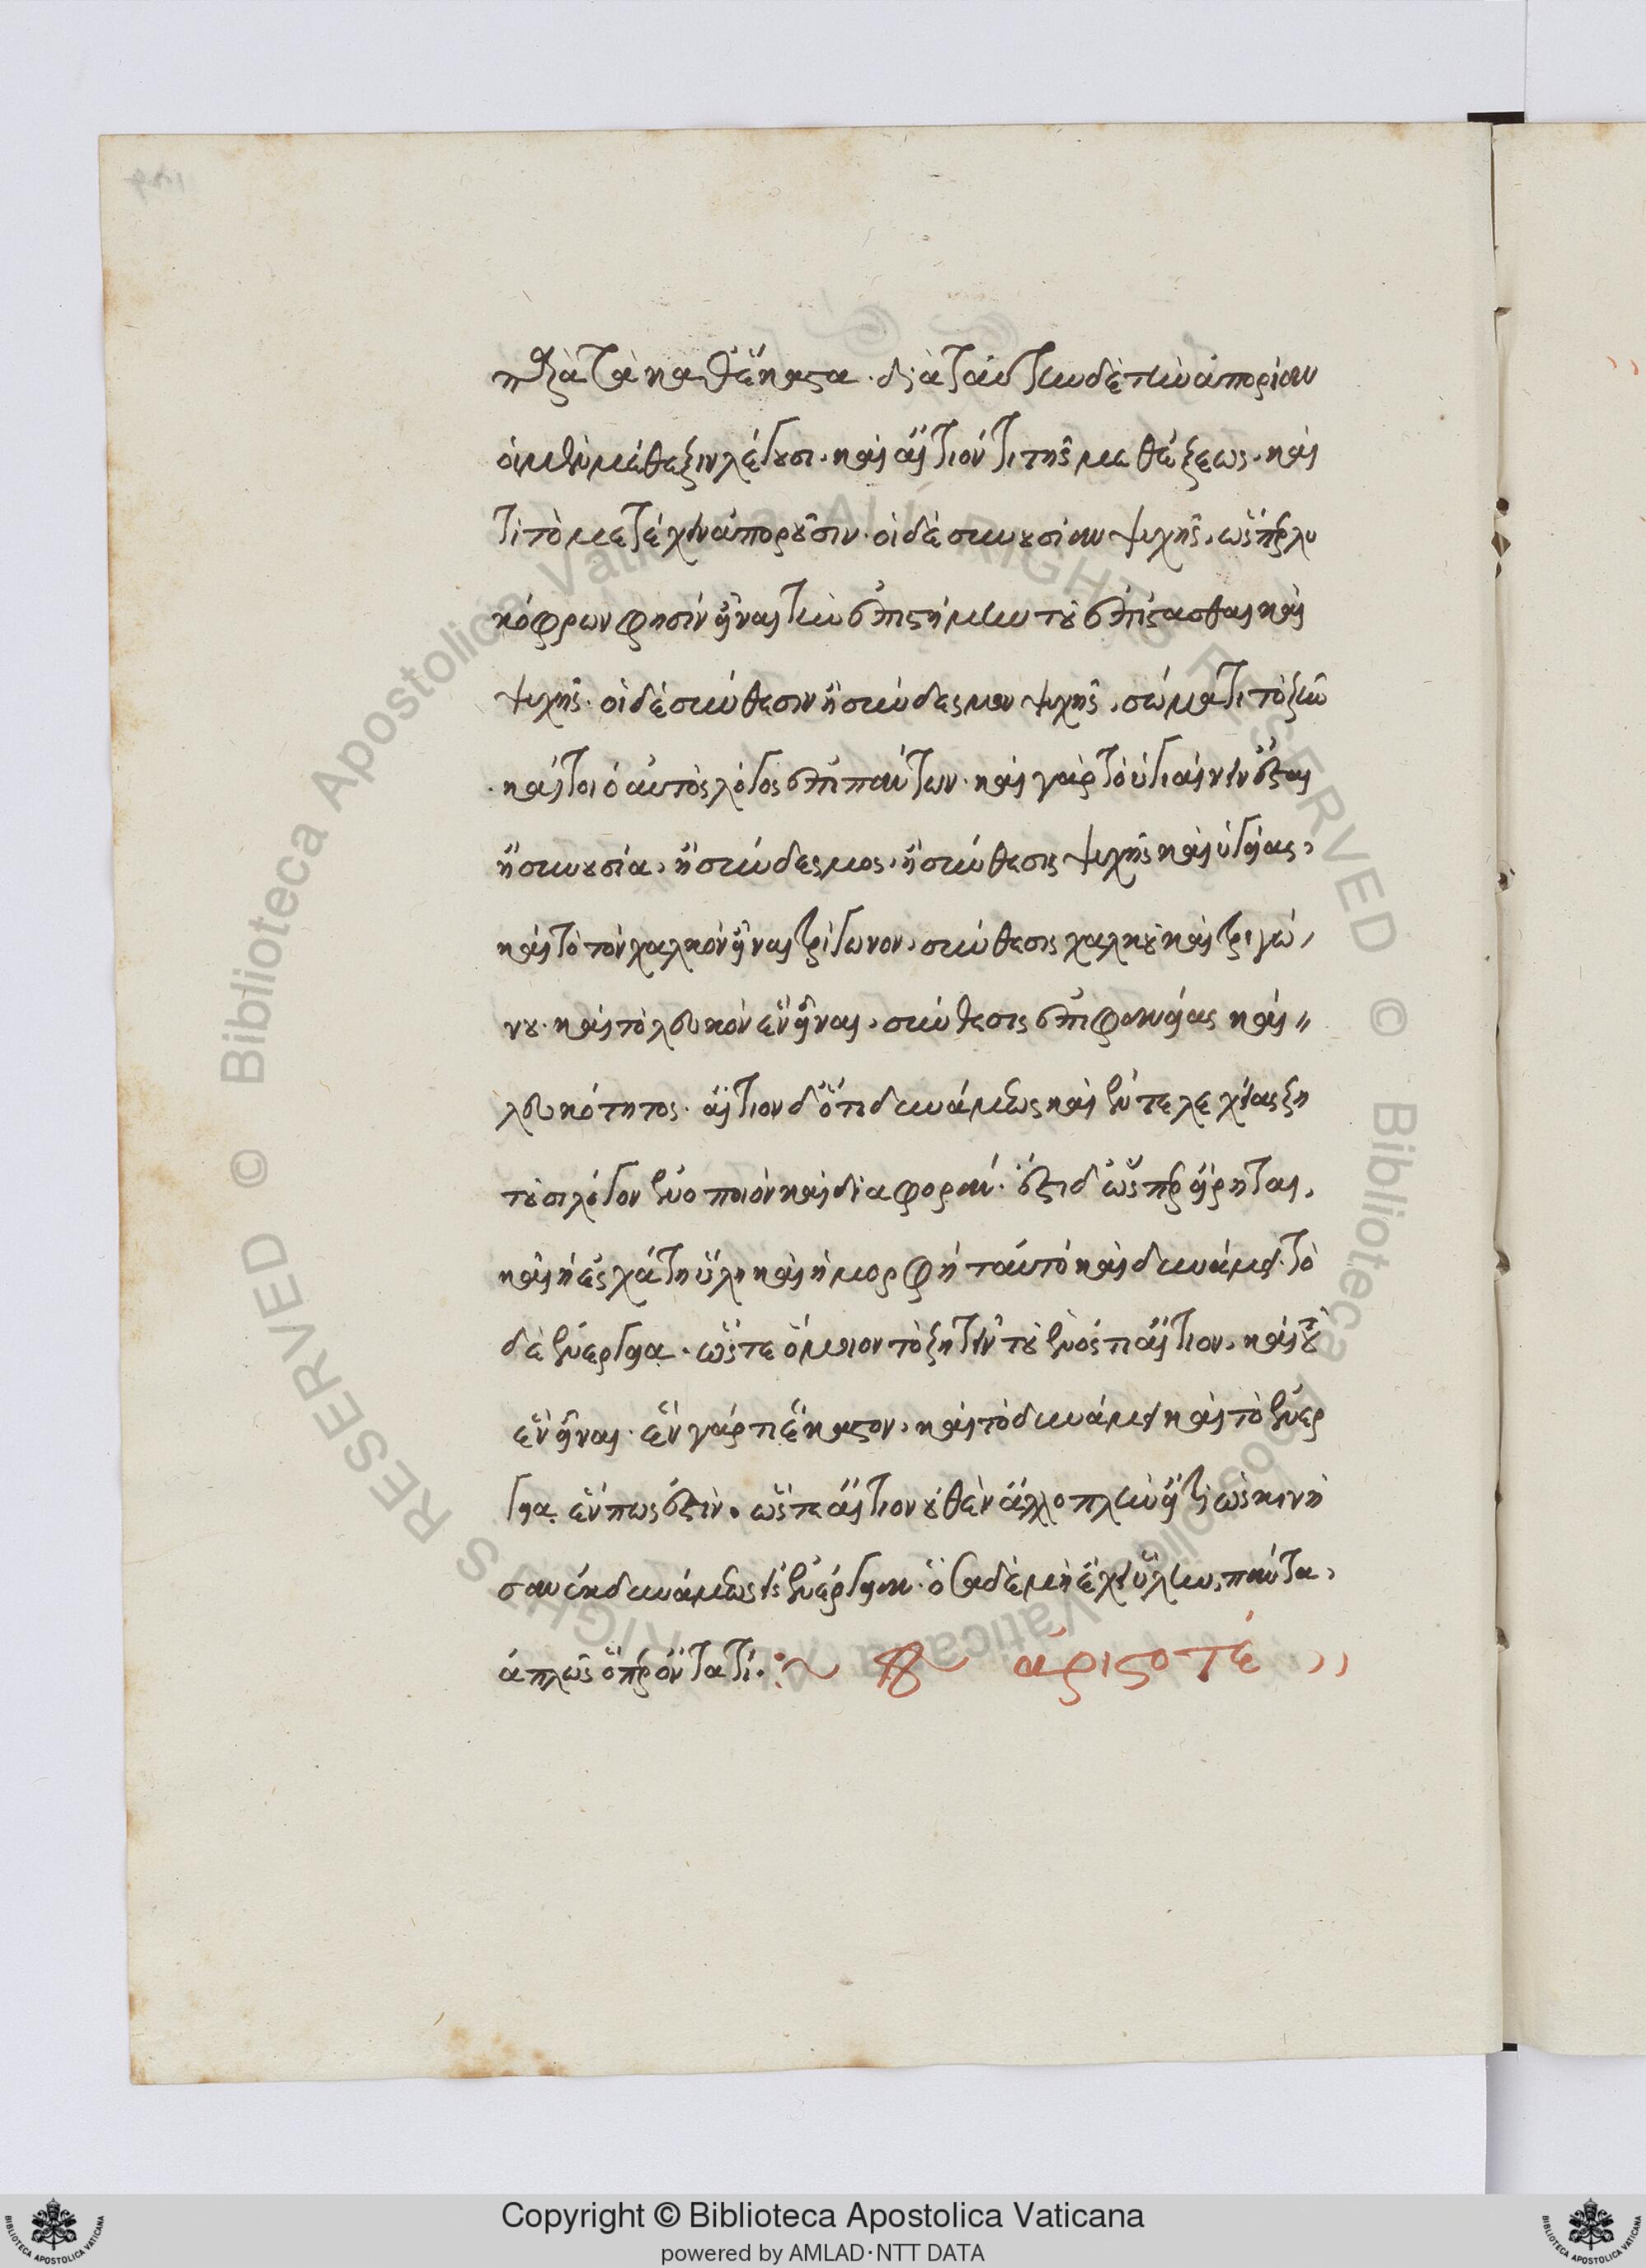 παρὰ τὰ καθέκαστα. διὰ ταύτην δὲ τὴν ἀπορίαν
οἱ μὲν μέθεξιν λέγουσι. καὶ αἴτιόν τι τῆς μεθέξεως. καὶ
τί τὸ μετέχειν ἀποροῦσιν. οἱ δὲ συνουσίαν ψυχῆς, ὥσπερ λυ
κόφρων φησὶν εἶναι τὴν ἐπιστήμην τοῦ ἐπίστασθαι καὶ
ψυχῆς. οἱ δὲ σύνθεσιν ἢ σύνδεσμον ψυχῆς, σώματι τὸ ζῆν
. καίτοι ὁ αὐτὸς λόγος ἐπὶ πάντων. καὶ γὰρ τὸ ὑγιαίνειν ἔσται
ἢ συνουσία, ἢ σύνδεσμος, ἢ σύνθεσις ψυχῆς καὶ ὑγείας,
καὶ τὸ τὸν χαλκὸν εἶναι τρίγωνον, σύνθεσις χαλκοῦ καὶ τριγώ
νου. καὶ τὸ λευκὸν εἶναι, σύνθεσις ἐπιφανείας καὶ
λευκότητος. αἴτιον δ' ὅτι δυνάμεως καὶ ἐντελεχείας ζη
τοῦσι λόγον ἑνοποιὸν καὶ διαφοράν. ἔστι δ' ὥσπερ εἴρηται,
καὶ ἡ ἐσχάτη ὕλη καὶ ἡ μορφὴ ταυτὸ καὶ δυνάμει. τὸ
δὲ ἐνεργεία. ὥστε ὅμοιον τὸ ζητεῖν τοῦ ἑνός τι αἴτιον, καὶ τοῦ
ἓν εἶναι. ἓν γάρ τι ἕκαστον, καὶ τὸ δυνάμει καὶ τὸ ἐνερ
γεία. ἕν πως ἐστίν. ὥστε αἴτιον οὐθὲν ἄλλο πλὴν εἴ τι ὡς κινῆ
σαν ἐκ δυνάμεως εἰς ἐνέργειαν. ὅσα δὲ μὴ ἔχει ὕλην, πάντα,
ἁπλῶς ὅπερ ὄντα τί. :~ ἀριστοτέ